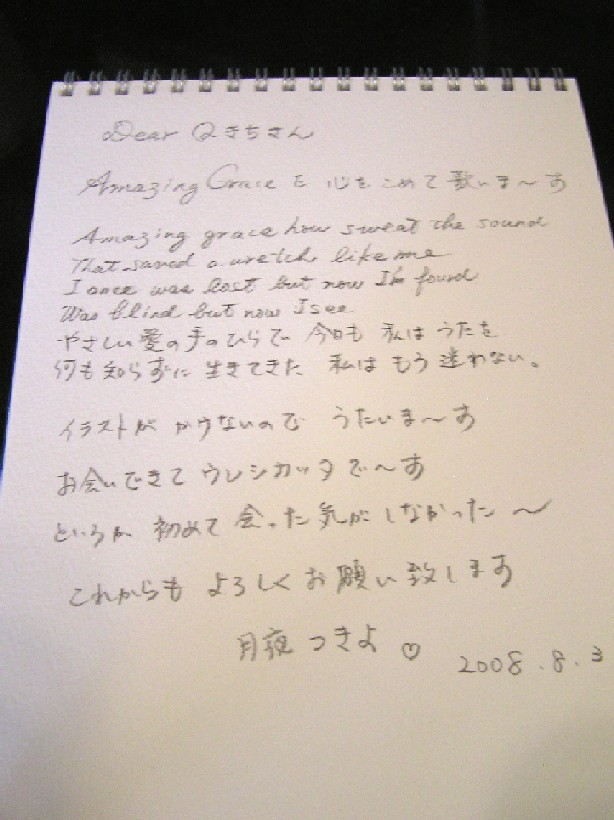 Dear Qきちさん
Amazing Grace を 心をこめて歌いま〜す
Amazing grace how sweat the sound
That saved a wretch like me
I once was lost but now I'm found
Was blind but now I see
やさしい愛の手のひらで 今日も 私は うたを
何も知らずに 生きてきた 私は もう 迷わない。
イラストが かけないので うたいま〜す
お会いできて ウレシカッタで〜す
というか 初めて 会った 気が しなかった 〜
これからも よろしく お願い 致します
月夜 つきよ ♡ 2008.8.3